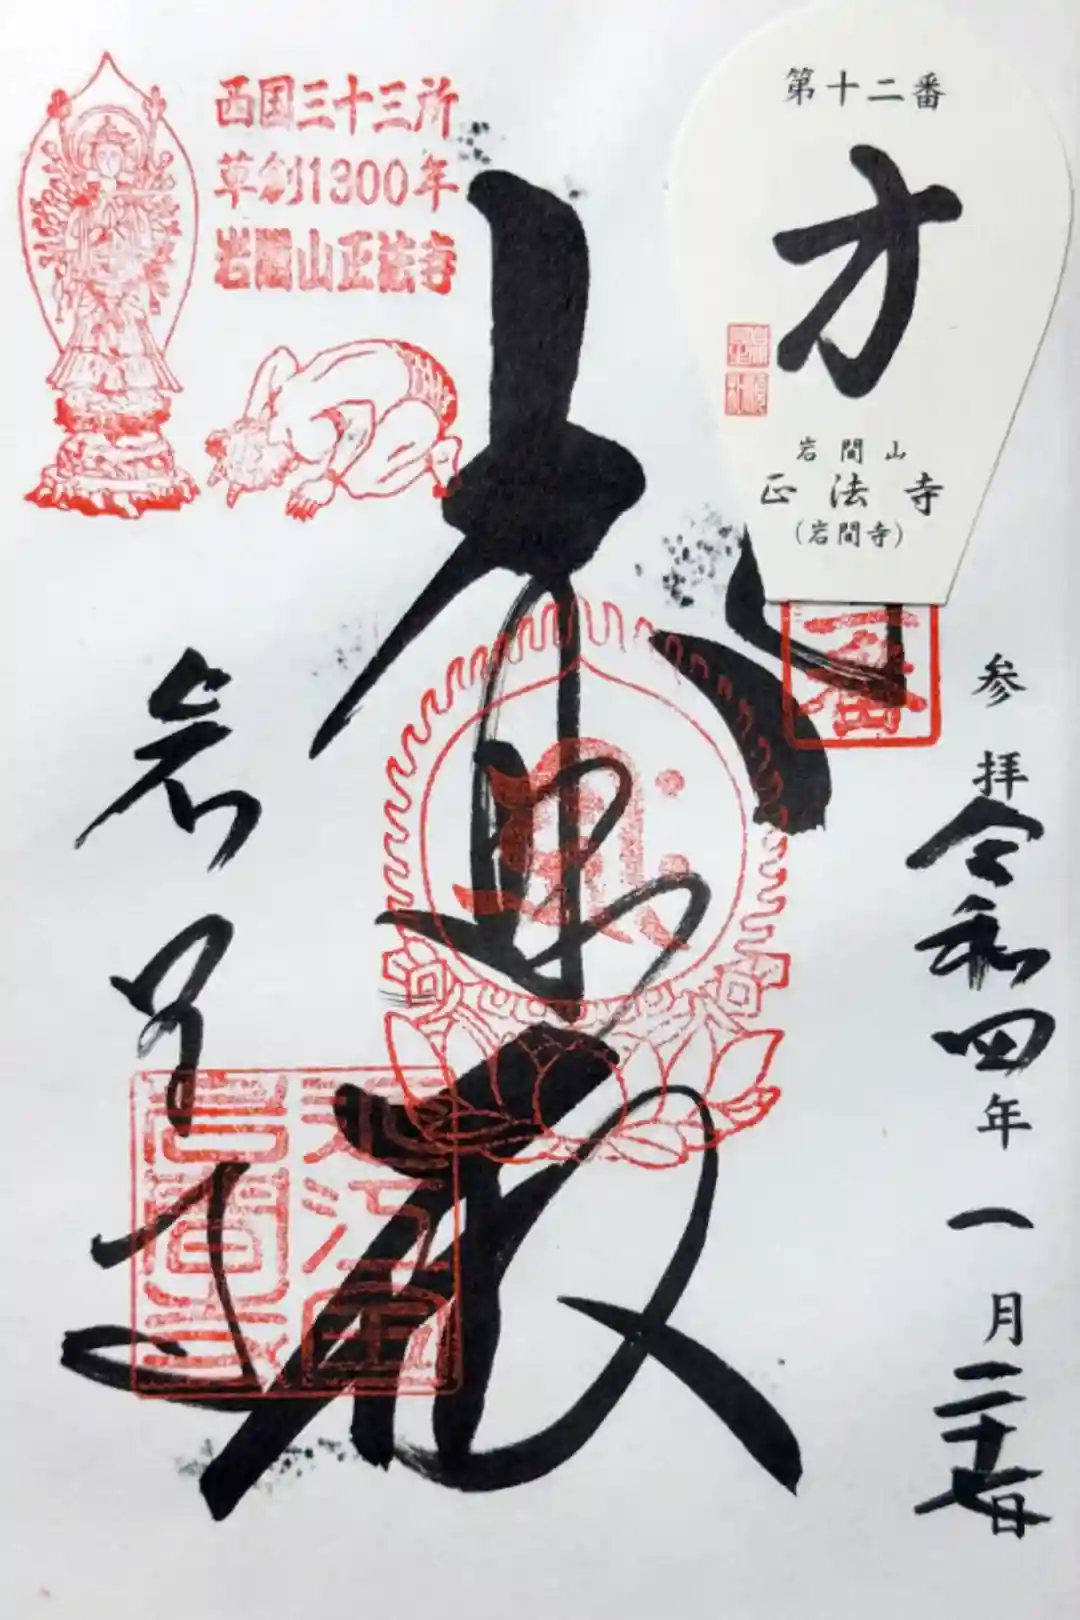 西国三十三所
草創1300年
岩間山正法寺
第十二番
方
岩間山
正法寺
(岩間寺)
参拝
令和四年一月二十七日
大悲殿
岩間寺